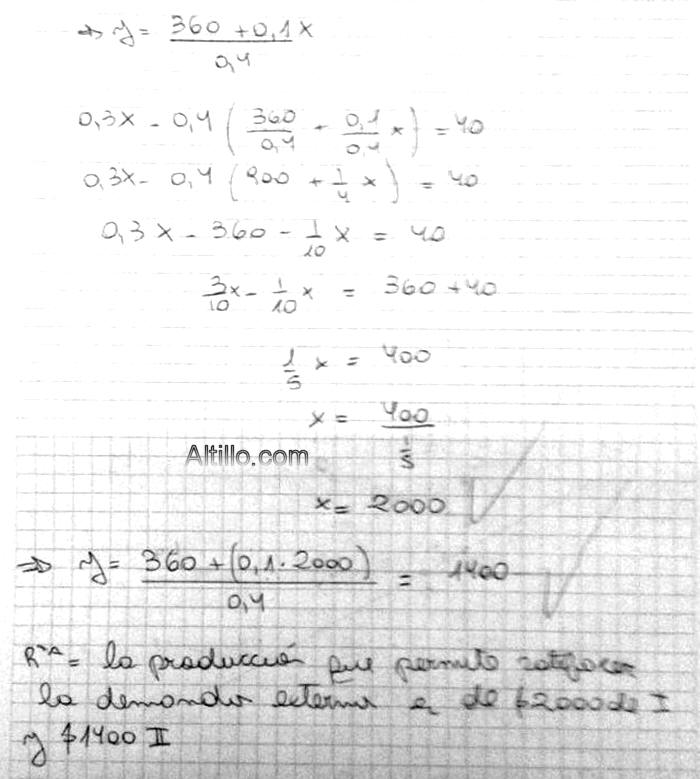 ⇒ y = (360 + 0,1x)/0,4
0,3x - 0,4 (360/0,4 + 0,1/0,4 x) = 40
0,3x - 0,4 (900 + 1/4 x) = 40
0,3x - 360 - 1/10 x = 40
3/10 x - 1/10 x = 360 + 40
1/5 x = 400
x = 400/(1/5)
Altillo.com
x = 2000
⇒ y = (360 + (0,1 . 2000))/0,4 = 1400
R^TA = la producción que permite satisfacer
la demanda externa es de $2000 de I
y $1400 II